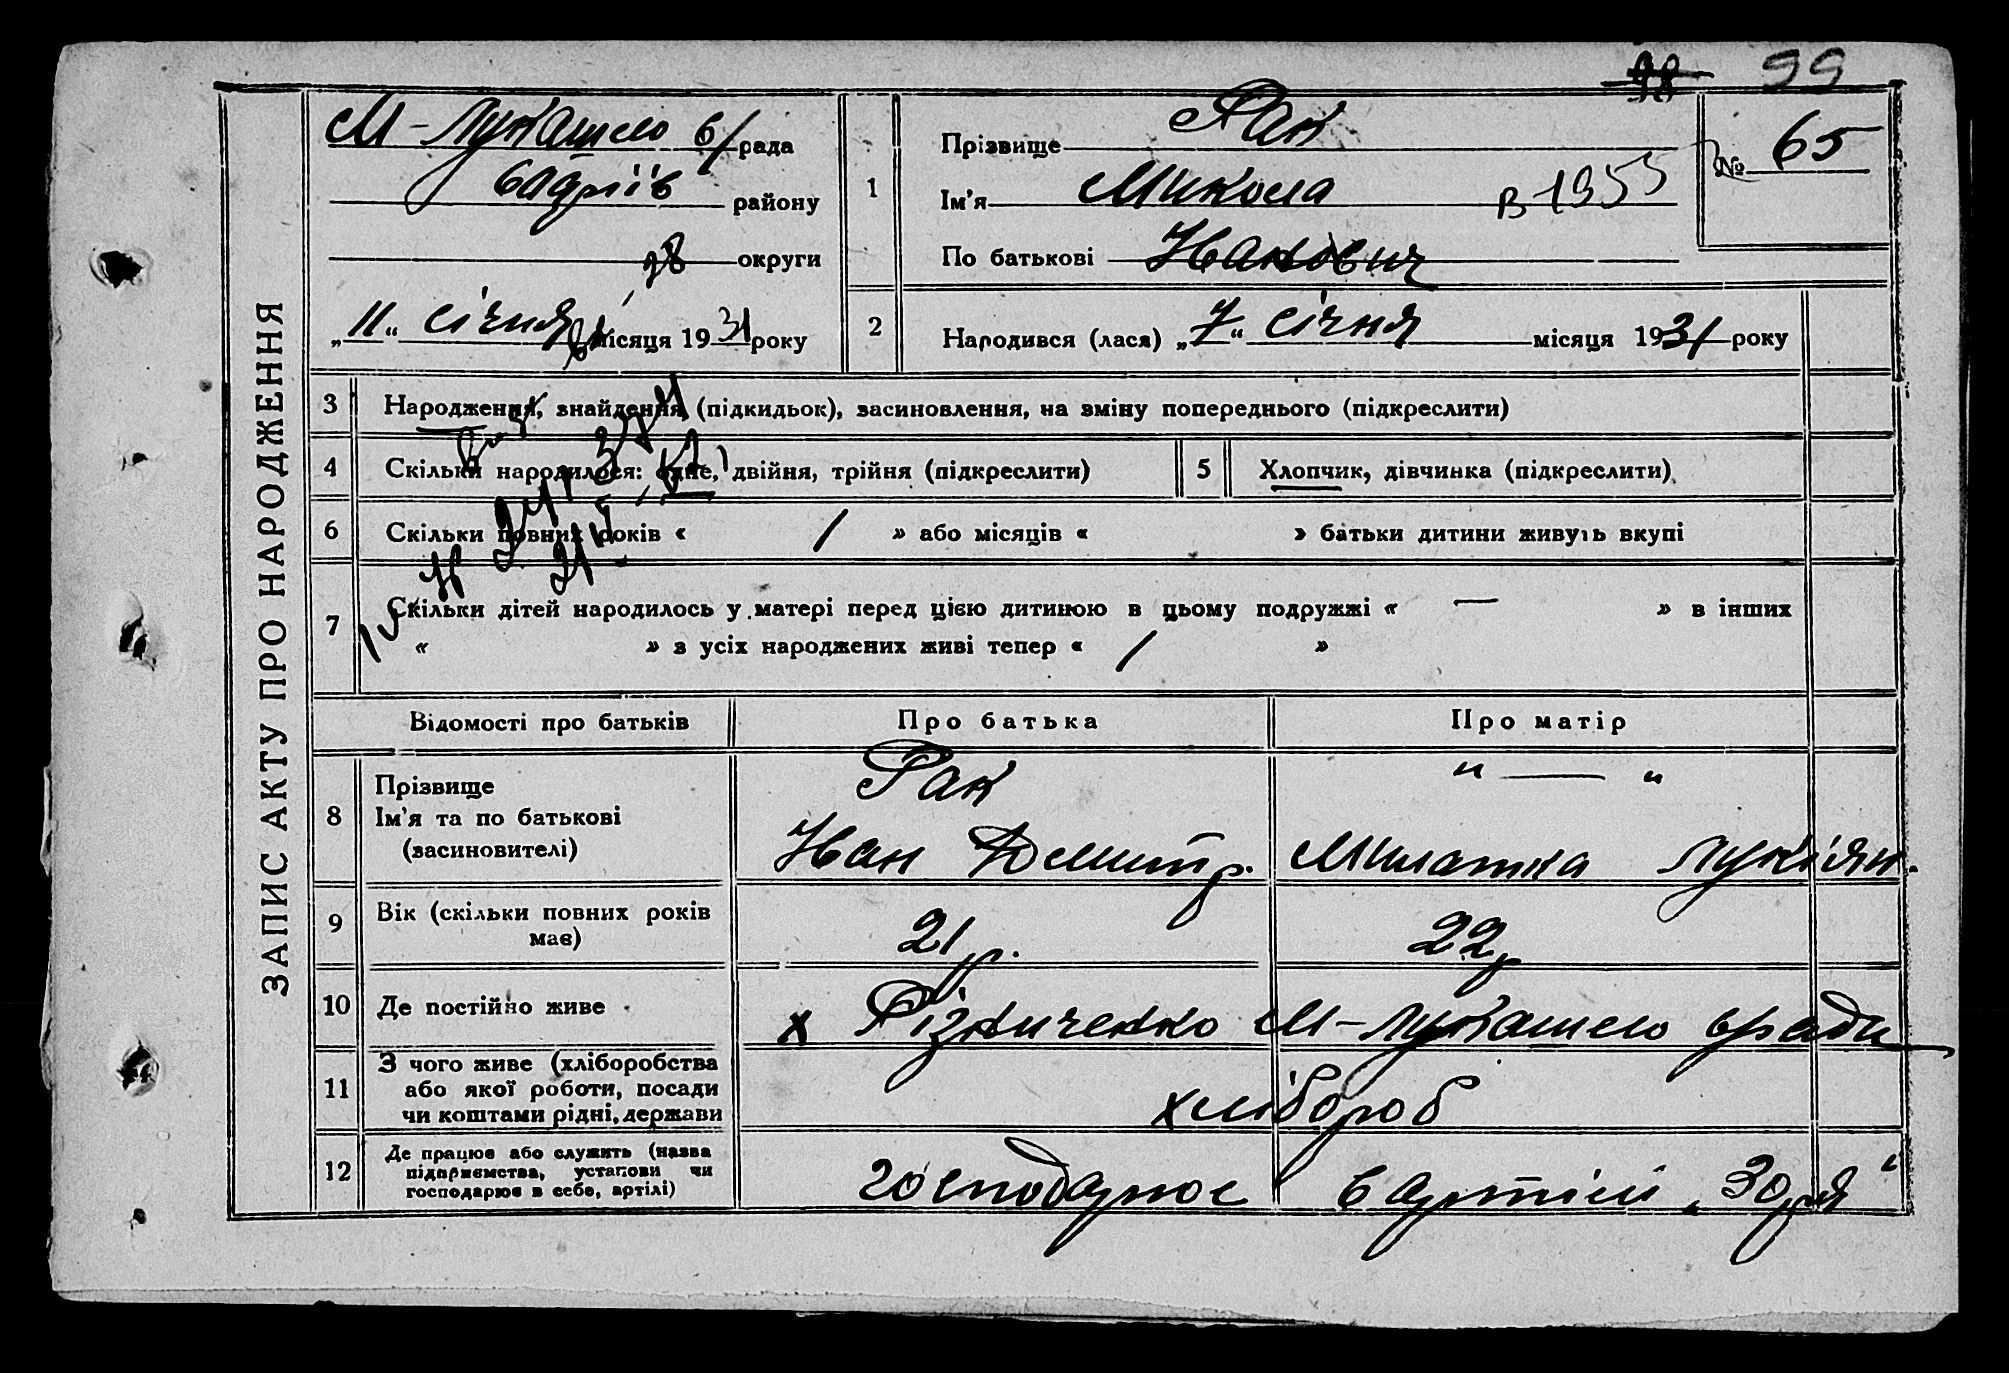 99
ЗАПИС АКТУ ПРО НАРОДЖЕННЯ
М-Лукашево с/рада
району
округи
„11“ січня місяця 1931 року
1 Прізвище Рак
Ім'я Микола в 1955
По батькові Иванович
№ 65
2 Народився (лася) „7“ січня місяця 1931 року
3 Народження, знайдення (підкидьок), засиновлення, на зміну попереднього (підкреслити)
4 Скільки народилося: одне, двійня, трійня (підкреслити) 5 Хлопчик, дівчинка (підкреслити)
6 Скільки повних років « / » або місяців « » батьки дитини живуть вкупі
7 Скільки дітей народилось у матері перед цією дитиною в цьому подружжі « — » в інших
« » з усіх народжених живі тепер « / »
Відомості про батьків Про батька Про матір
8 Прізвище Рак " — "
Ім'я та по батькові Иван Дмитр. Милашка Лукіян.
(засиновителі)
9 Вік (скільки повних років має) 21 р. 22 р
10 Де постійно живе х Різниченко М-Лукашево с/ради
11 З чого живе (хліборобства або якої роботи, посади чи коштами рідні, держави хлібороб
12 Де працює або служить (назва підприємства, установи чи господарює в себе, артілі) господарює в артілі „Зоря“